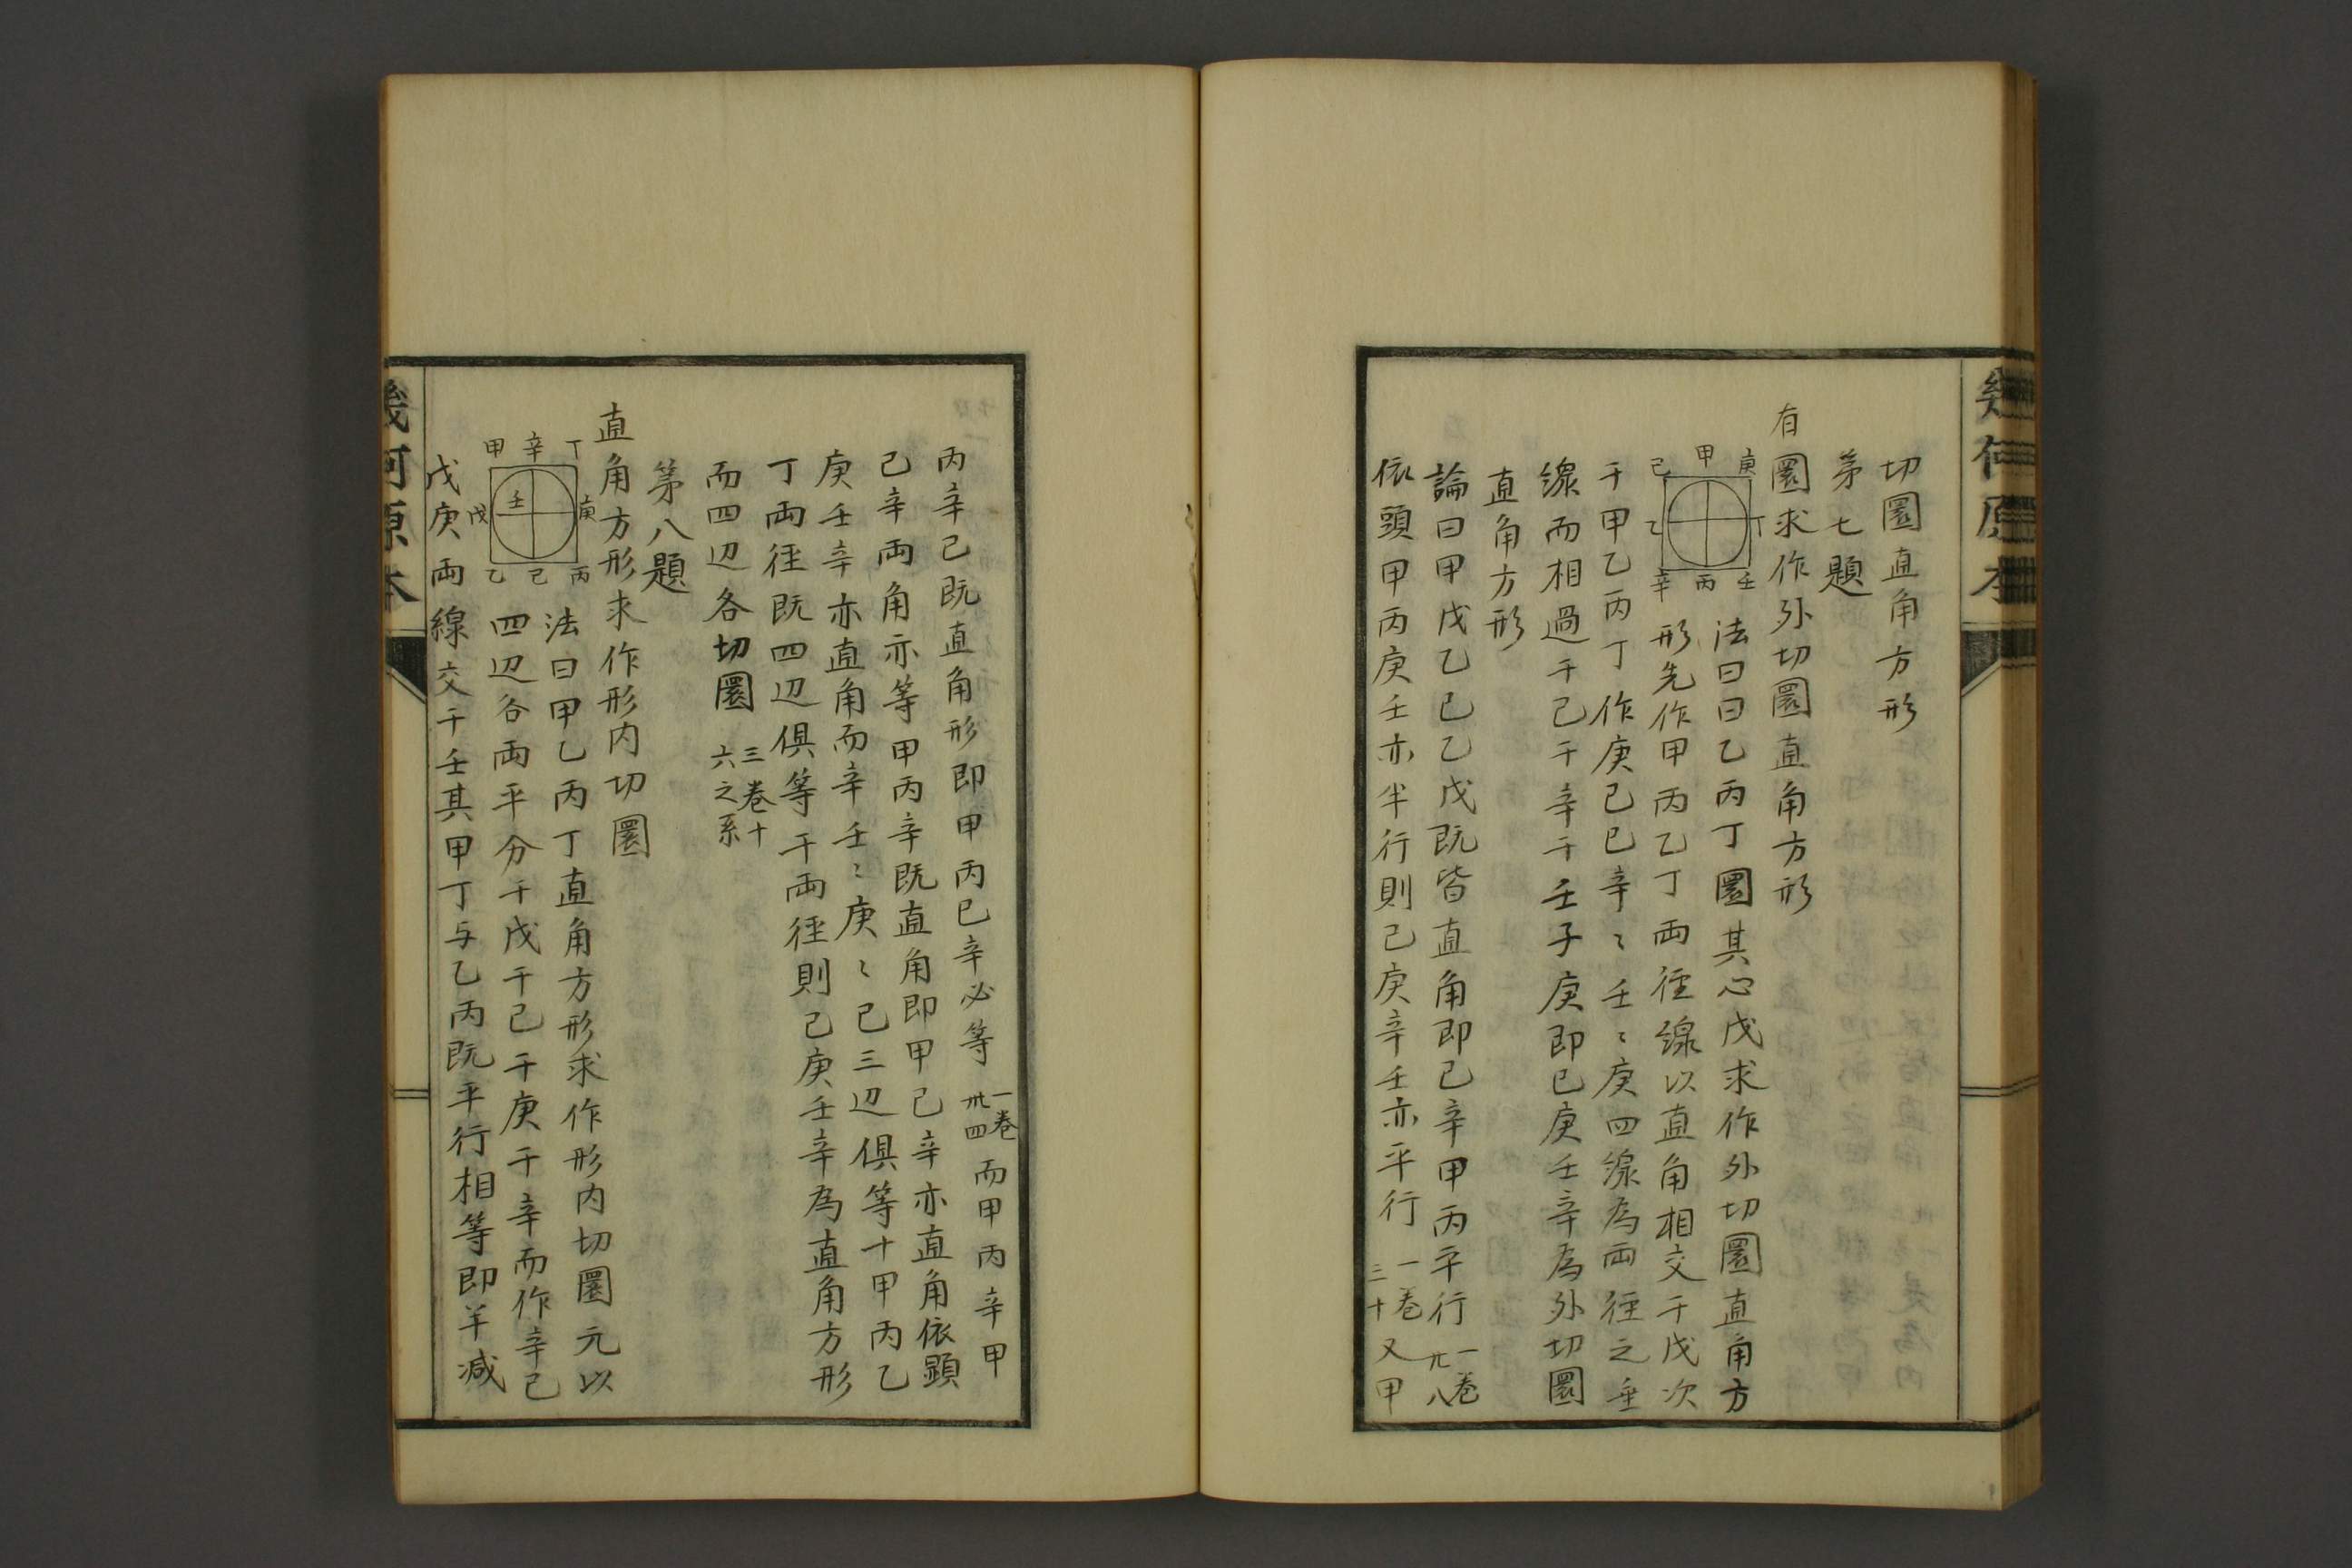 幾何原本
切圜直角方形
第七題
有圜求作外切圜直角方形
甲
庚
己
乙
丁
辛
丙
壬
法曰曰乙丙丁圜其心戊求作外切圜直角方
形先作甲丙乙丁両徑線以直角相交于戊次
于甲乙丙丁作庚己己辛〻壬〻庚四線為両徑之垂
線而相過于己于辛于壬子庚即己庚壬辛為外切圜
直角方形
論曰甲戊乙己乙戊既皆直角即己辛甲丙平行一巻
廿八
依頭甲丙庚壬亦半行則己庚辛壬亦平行一巻
三十
又甲
丙辛己既直角形即甲丙己辛必等一巻
卅四
而甲丙辛甲
己辛両角亦等甲丙辛既直角即甲己辛亦直角依顕
庚壬辛亦直角而辛壬〻庚〻己三辺俱等十甲丙乙
丁両徑既四辺俱等于両徑則己庚壬辛為直角方形
而四辺各切圜三巻十
六之系
第八題
直角方形求作形内切圜
甲
辛
丁
壬
戊
庚
乙
己
丙
法曰甲乙丙丁直角方形求作形内切圜元以
四辺各両平分于戊于己于庚于辛而作辛己
戊庚両線交于壬其甲丁与乙丙既平行相等即半减
幾何原本